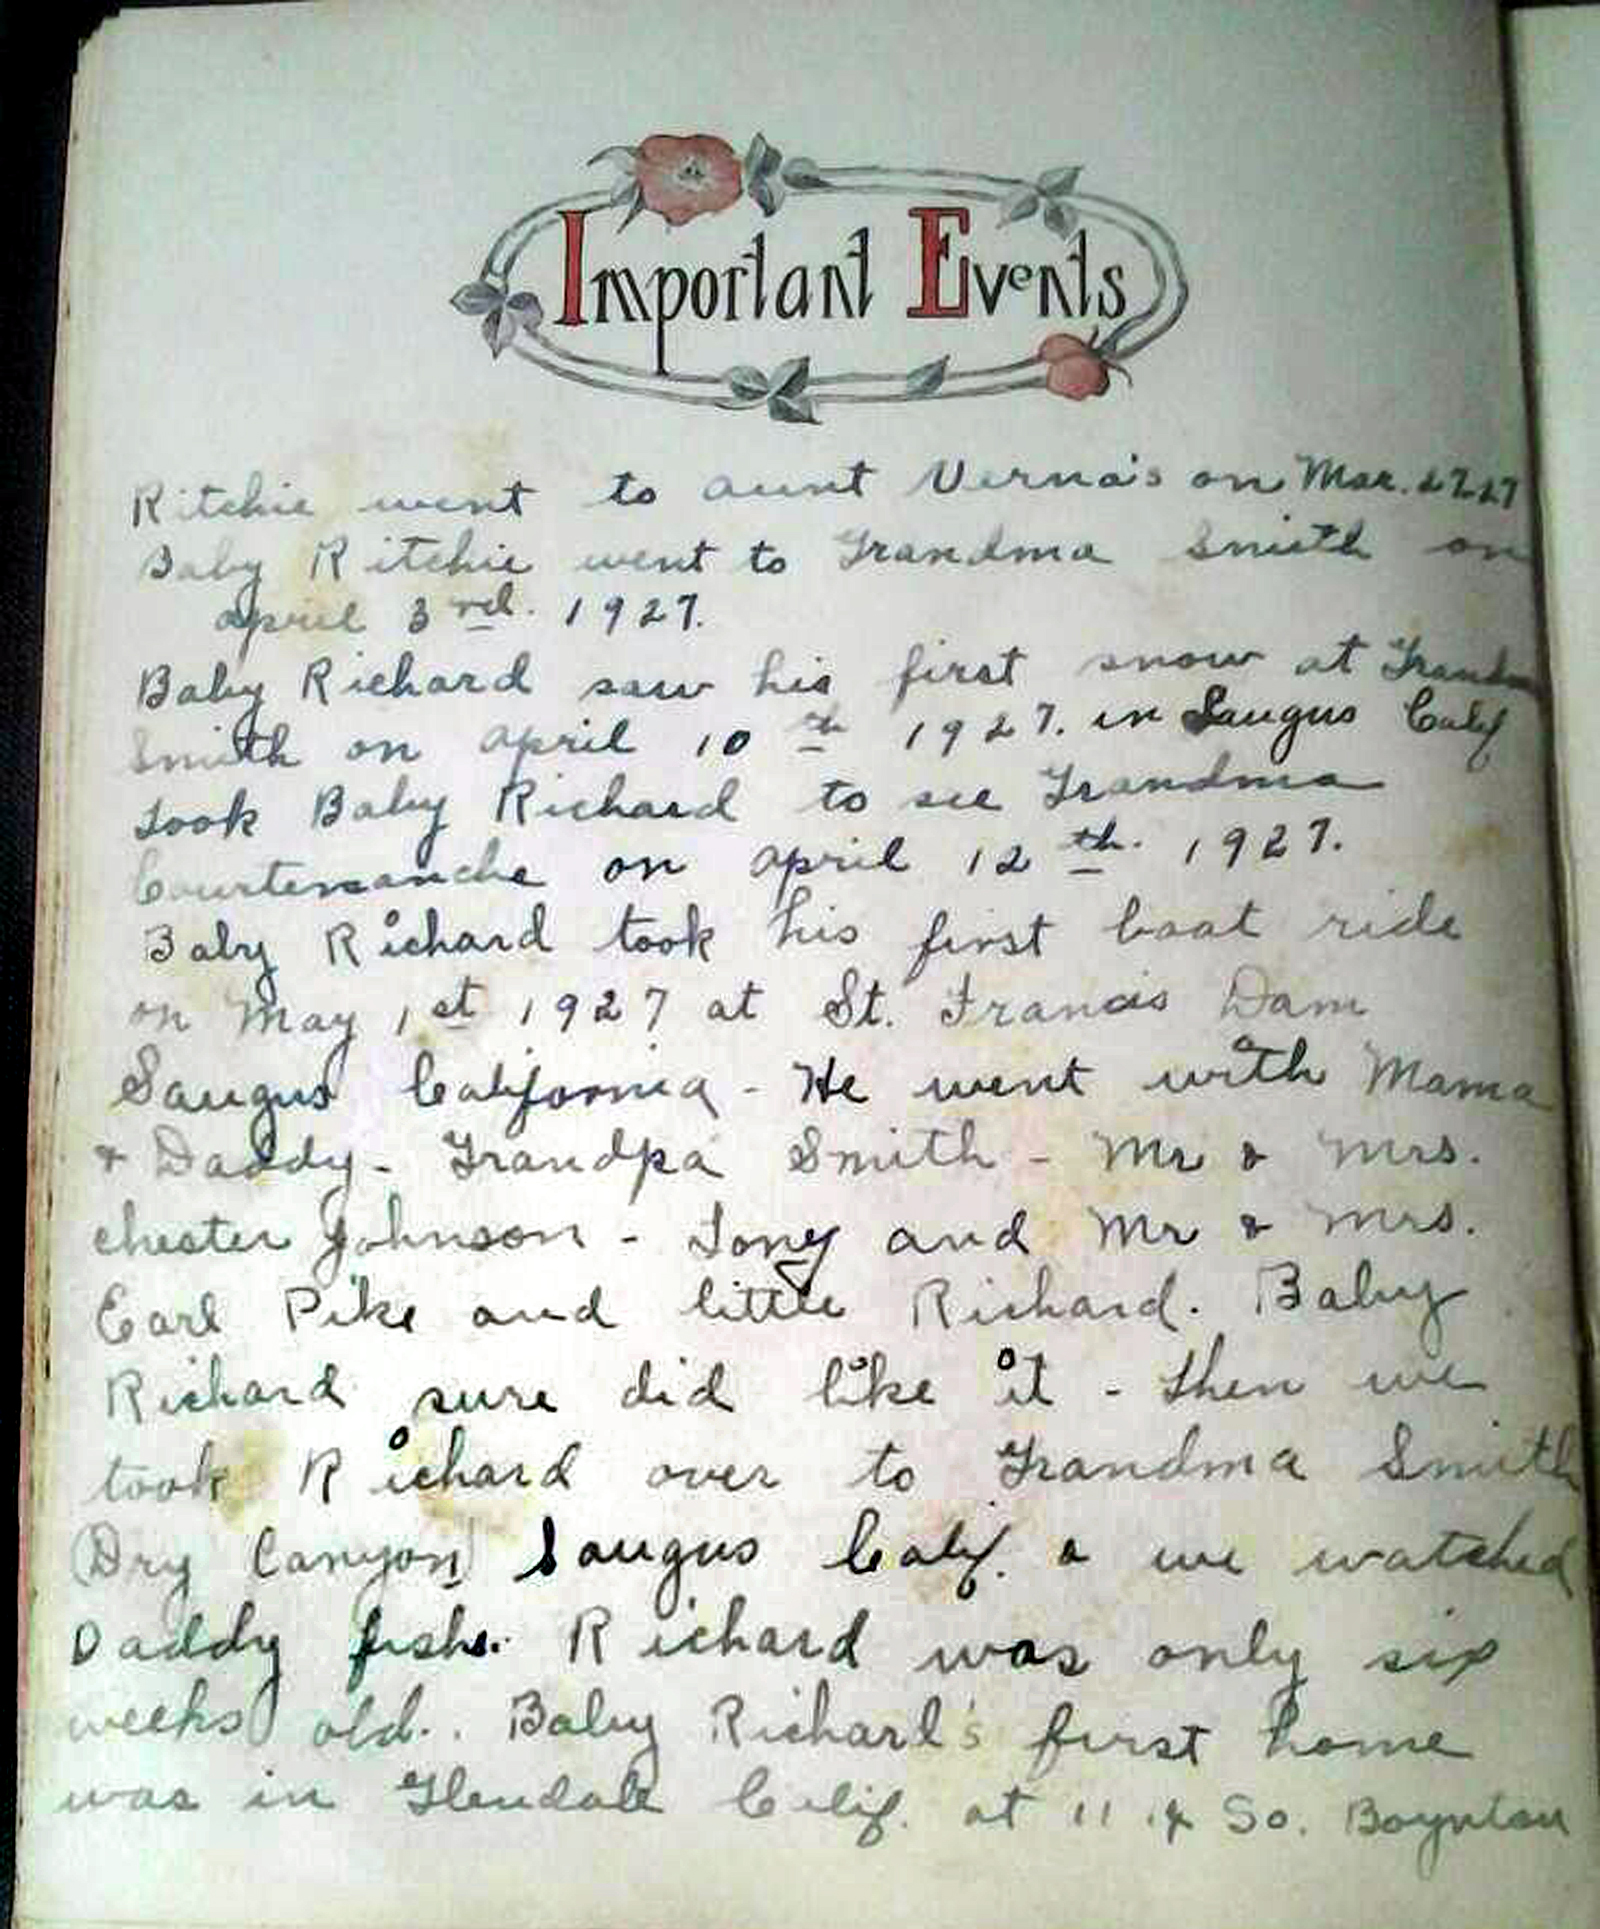 Important Events
Ritchie went to aunt Verna's on Mar. 27 27
Baby Ritchie went to Grandma Smith on
april 3rd. 1927.
Baby Richard saw his first snow at Grandma
Smith on april 10th 1927. in Saugus Calif
took Baby Richard to see Grandma
Courtemanche on april 12th. 1927.
Baby Richard took his first boat ride
on May 1st 1927 at St. Francis Dam
Saugus California - He went with Mama
& Daddy - Grandpa Smith - Mr & Mrs.
chester Johnson - Tony and Mr & Mrs.
Earl Pike and little Richard. Baby
Richard sure did like it - then we
took Richard over to Grandma Smith
(Dry Canyon) Saugus Calif. & we watched
Daddy fish. Richard was only six
weeks old.. Baby Richard's first home
was in Glendale Calif. at 1114 So. Boynton